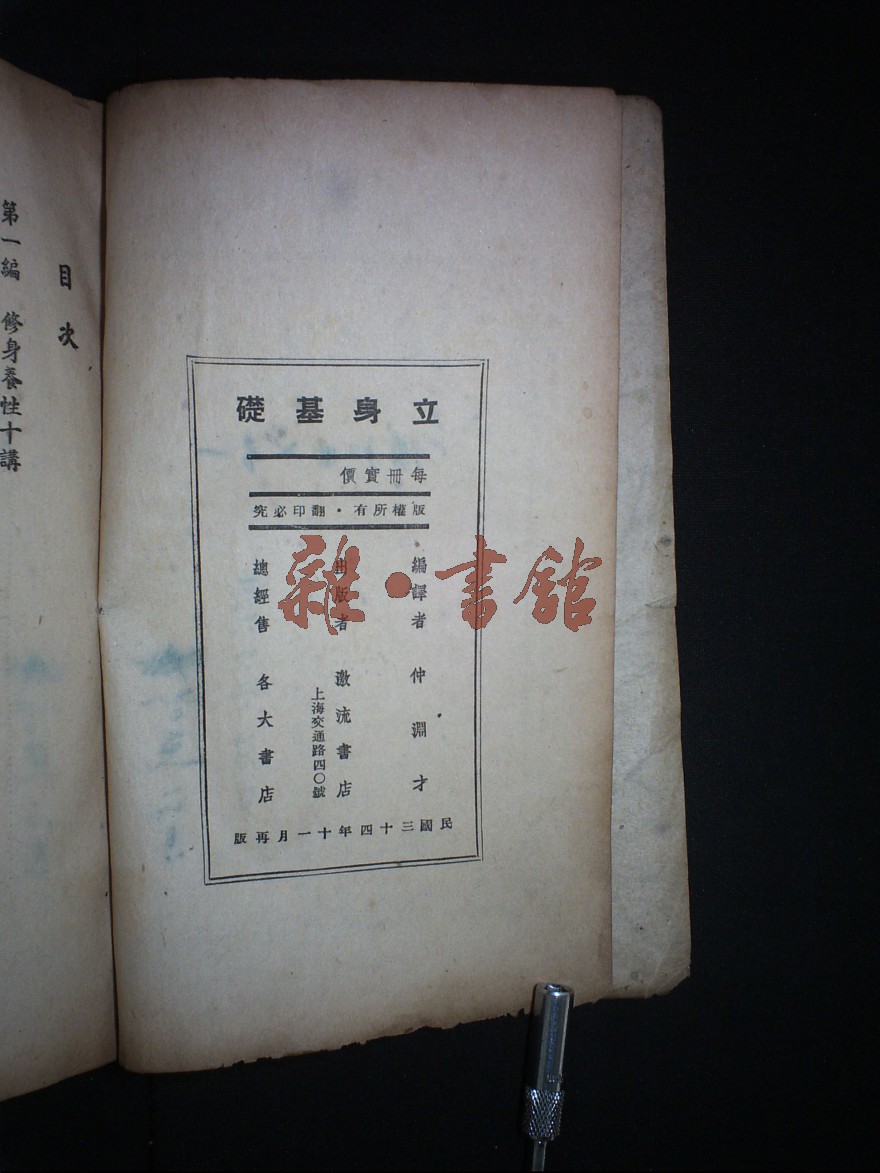 立身基礎
每冊實價
版權所有・翻印必究
編譯者 仲淵才
出版者 激流書店
上海交通路四〇號
總經售 各大書店
民國三十四年十一月再版
目次
第一編 修身養性十講
雜・書館